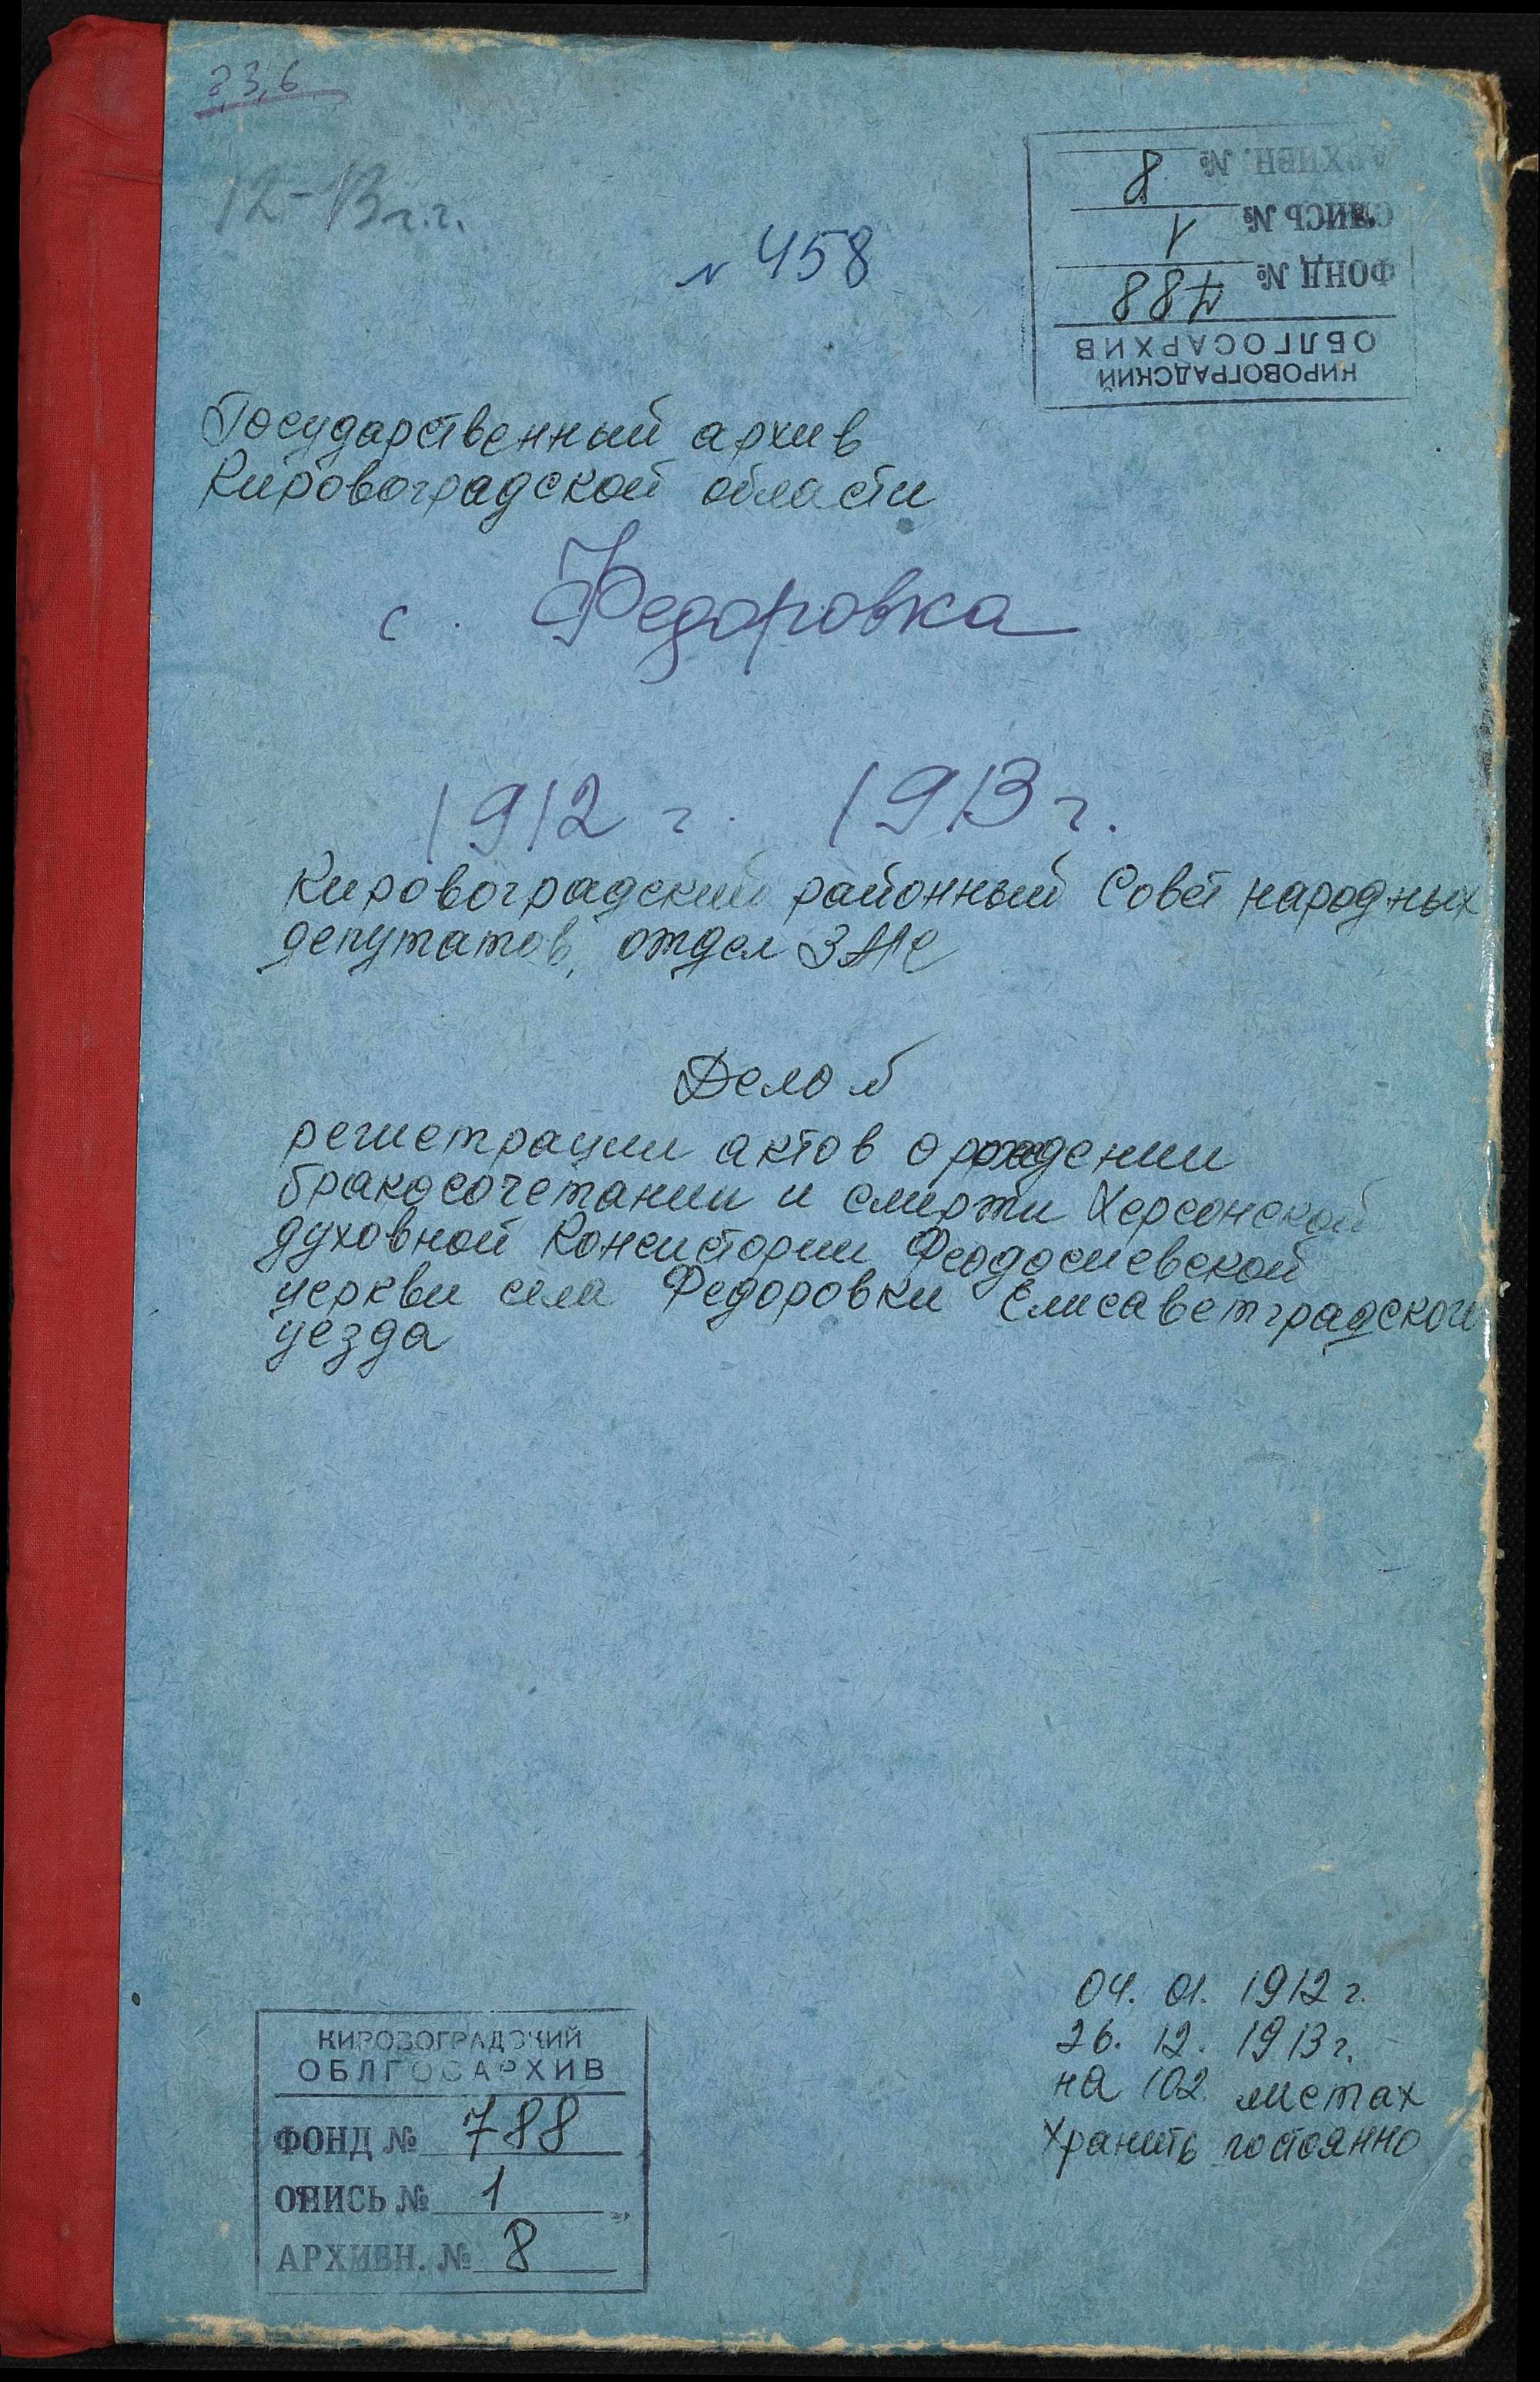 2,3,6
12-13 г.г.
КИРОВОГРАДСКИЙ
ОБЛГОСАРХИВ
ФОНД № 788
ОПИСЬ № 1
АРХИВН. № 8
№ 458
Государственный архив
Кировоградской области
с. Федоровка
1912 г. 1913 г.
Кировоградский районный Совет народных
депутатов, отдел ЗАГС
Дело
регистрации актов о рождении
бракосочетании и смерти Херсонской
духовной Консистории Феодосиевской
церкви села Федоровки Елисаветградского
уезда
04. 01. 1912 г.
26. 12. 1913 г.
на 102 листах
Хранить постоянно
КИРОВОГРАДСКИЙ
ОБЛГОСАРХИВ
ФОНД № 788
ОПИСЬ № 1
АРХИВН. № 8